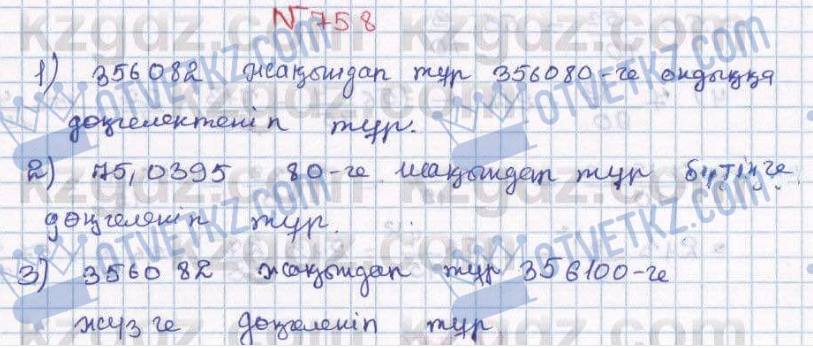 N 758
1) 356082 жақындап тұр 356080-ге ондыққа
дөңгелектеніп тұр.
2) 75,0395 80-ге жақындап тұр бүтінге
дөңгеленіп тұр.
3) 356082 жақындап тұр 356100-ге
жүзге дөңгеленіп тұр